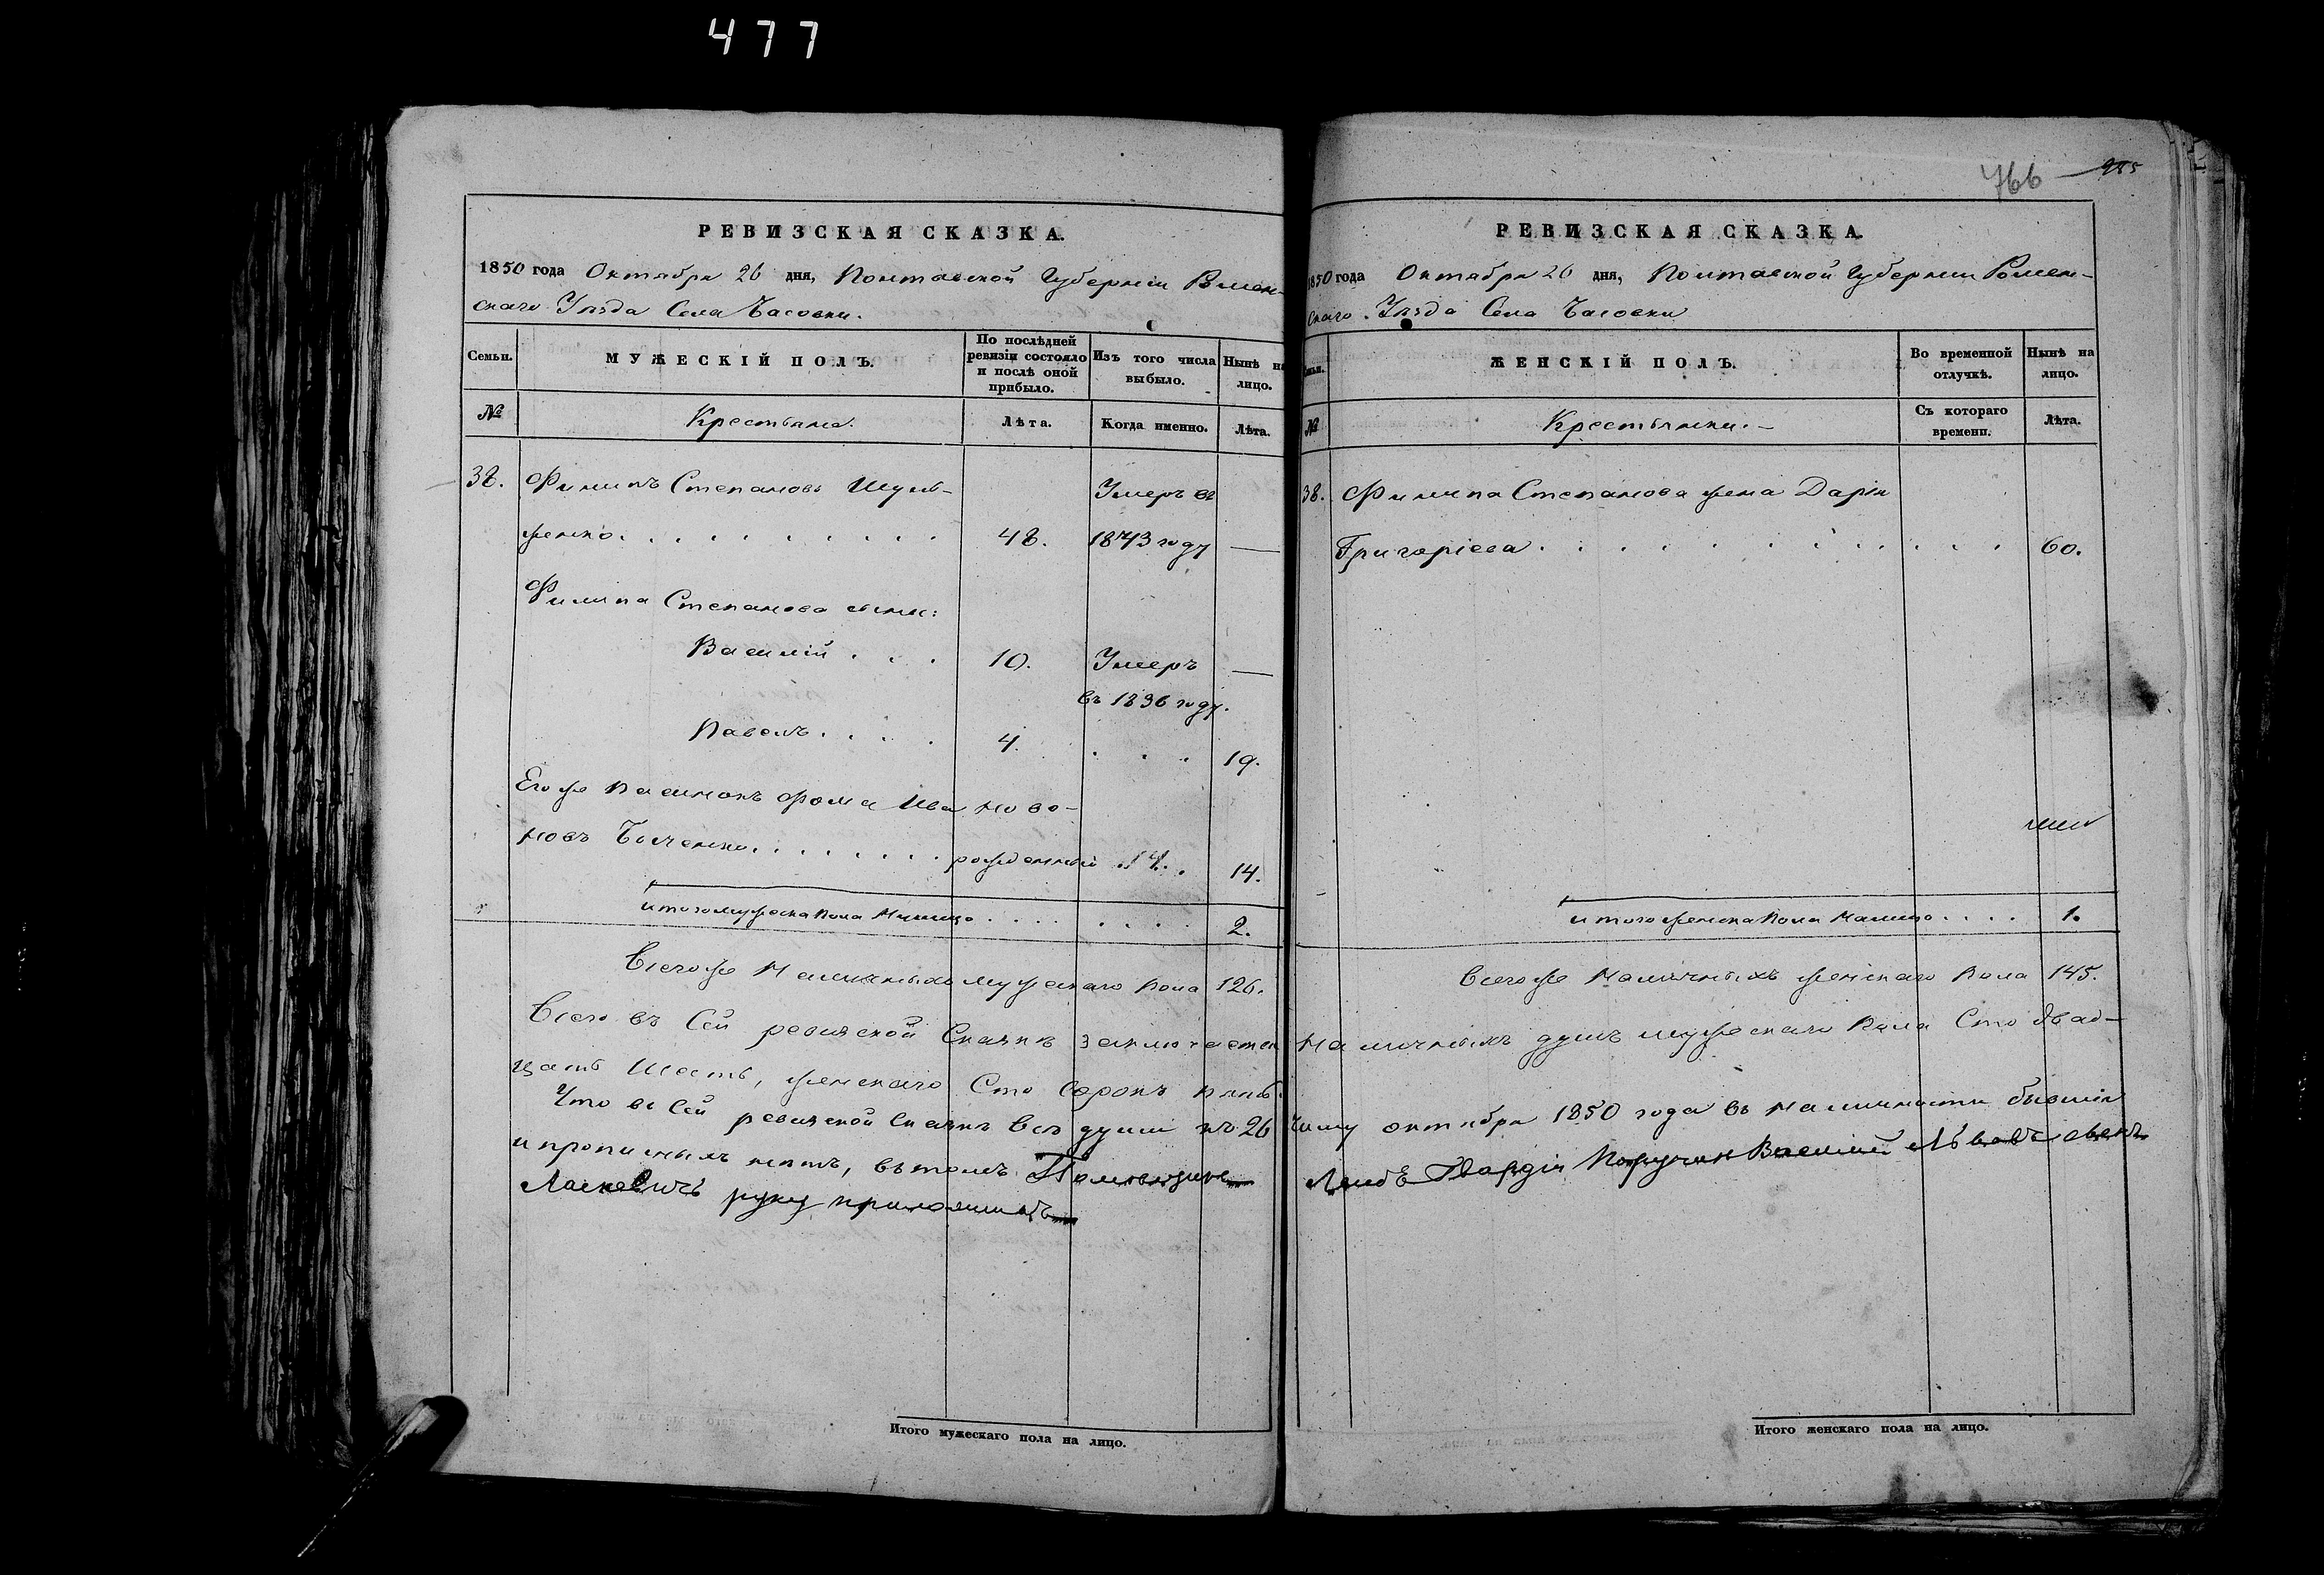 477
766 955
РЕВИЗСКАЯ СКАЗКА.
1850 года Октября 26 дня, Полтавской Губерніи Ромен-
скаго Уѣзда Села Часовки.
Семьи.
МУЖЕСКІЙ ПОЛЪ.
По послѣдней ревизіи состояло и послѣ оной прибыло.
Изъ того числа выбыло.
Нынѣ на лицо.
№
Крестьяне.
Лѣта.
Когда именно.
Лѣта.
38. Филипъ Степановъ Шуль- Умеръ въ
женко. 48. 1843 году —
Филипа Степанова сыны:
Василій 10. Умеръ —
въ 1836 году.
Павелъ 4. 19.
Его же пасынокъ Фома Ива ново-
новъ рожденный 14.
итого мужеска пола налицо 2.
Всего же наличныхъ мужескаго пола 126.
РЕВИЗСКАЯ СКАЗКА.
1850 года Октября 26 дня, Полтавской Губерніи Ромен-
скаго Уѣзда Села Часовки
ЖЕНСКІЙ ПОЛЪ.
Во временной отлучкѣ.
Нынѣ на лицо.
№
Крестьянки.
Съ котораго времени.
Лѣта.
38. Филипа Степанова жена Дарія
Григоріева 60.
итого женска пола налицо 1.
Всего же наличныхъ женскаго пола 145.
Всего въ сей ревизской сказкѣ заключается наличныхъ душъ мужескаго пола сто двад-
цать шесть, женскаго сто сорокъ пять.
Что въ сей ревизской сказкѣ всѣ души къ 26 числу октября 1850 года въ наличности бывшія
и прописныхъ нѣтъ, въ томъ Лейбъ Гвардіи Поручикъ Василій Львовъ сынъ
руку приложилъ
Итого мужескаго пола на лицо.
Итого женскаго пола на лицо.